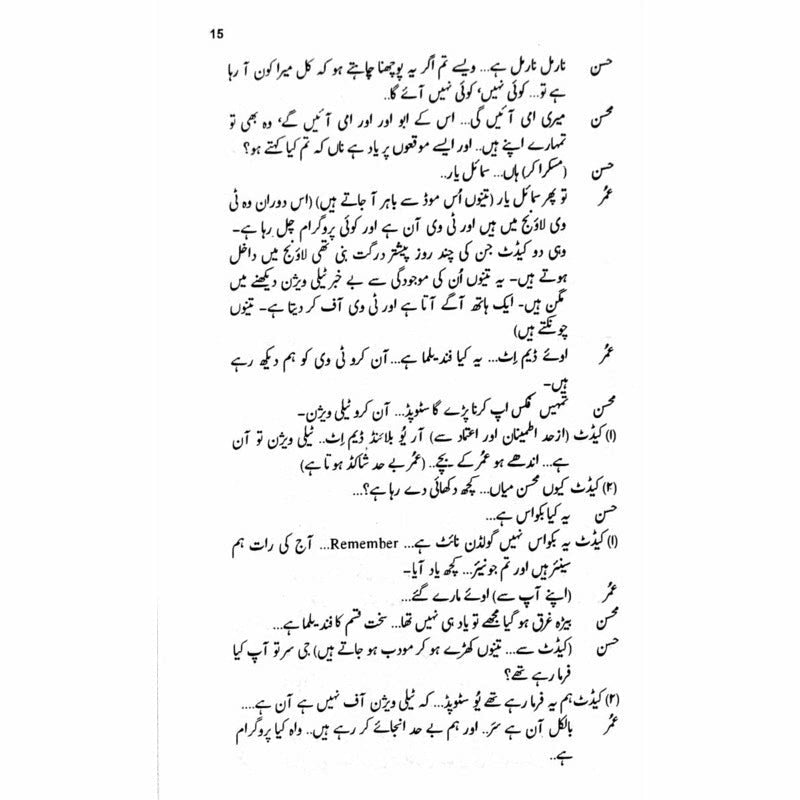 15
حسن نارمل نارمل ہے... ویسے تم اگر یہ پوچھنا چاہتے ہو کہ کل میرا کون آ رہا
ہے تو... کوئی نہیں‘ کوئی نہیں آئے گا..
محسن میری امی آئیں گی... اس کے ابو اور اور امی آئیں گے‘ وہ بھی تو
تمہارے اپنے ہیں.. اور ایسے موقعوں پر یاد ہے ناں کہ تم کیا کہتے ہو؟
حسن (مسکرا کر) ہاں... سمائل یار..
عمُر تو پھر سمائل یار (تینوں اُس موڈ سے باہر آ جاتے ہیں) (اس دوران وہ ٹی
وی لاؤنج میں ہیں اور ٹی وی آن ہے اور کوئی پروگرام چل رہا ہے۔
وہی دو کیڈٹ جن کی چند روز پیشتر درگت بنی تھی لاؤنج میں داخل
ہوتے ہیں۔ یہ تینوں اُن کی موجودگی سے بے خبر ٹیلی ویژن دیکھنے میں
مگن ہیں۔ ایک ہاتھ آگے آتا ہے اور ٹی وی آف کر دیتا ہے۔ تینوں
چونکتے ہیں)
عمُر اوئے ڈیم اِٹ... یہ کیا فندیلما ہے... آن کرو ٹی وی کو ہم دیکھ رہے
ہیں۔
محسن تمہیں فکس اپ کرنا پڑے گا سٹوپڈ... آن کرو ٹیلی ویژن۔
(ا) کیڈٹ (ازحد اطمینان اور اعتماد سے) آر یُو بلائنڈ ڈیم اِٹ.. ٹیلی ویژن تو آن
ہے... اندھے ہو عمُر کے بچے.. (عمُر بے حد شاکڈ ہوتا ہے)
(۲) کیڈٹ کیوں محسن میاں... کچھ دکھائی دے رہا ہے؟...
حسن یہ کیا بکواس ہے...
(ا) کیڈٹ یہ بکواس نہیں گولڈن نائٹ ہے... Remember... آج کی رات ہم
سینئر ہیں اور تم جونیئر... کچھ یاد آیا۔
عمُر (اپنے آپ سے) اوئے مارے گئے...
محسن بیڑہ غرق ہو گیا مجھے تو یاد ہی نہیں تھا... سخت قسم کا فندیلما ہے...
حسن (کیڈٹ سے... تینوں کھڑے ہو کر مودب ہو جاتے ہیں) جی سر تو آپ کیا
فرما رہے تھے؟
(۲) کیڈٹ ہم یہ فرما رہے تھے یُو سٹوپڈ... کہ ٹیلی ویژن آف نہیں ہے آن ہے....
عمُر بالکل آن ہے سَر.. اور ہم بے حد انجائے کر رہے ہیں.. واہ کیا پروگرام
ہے..